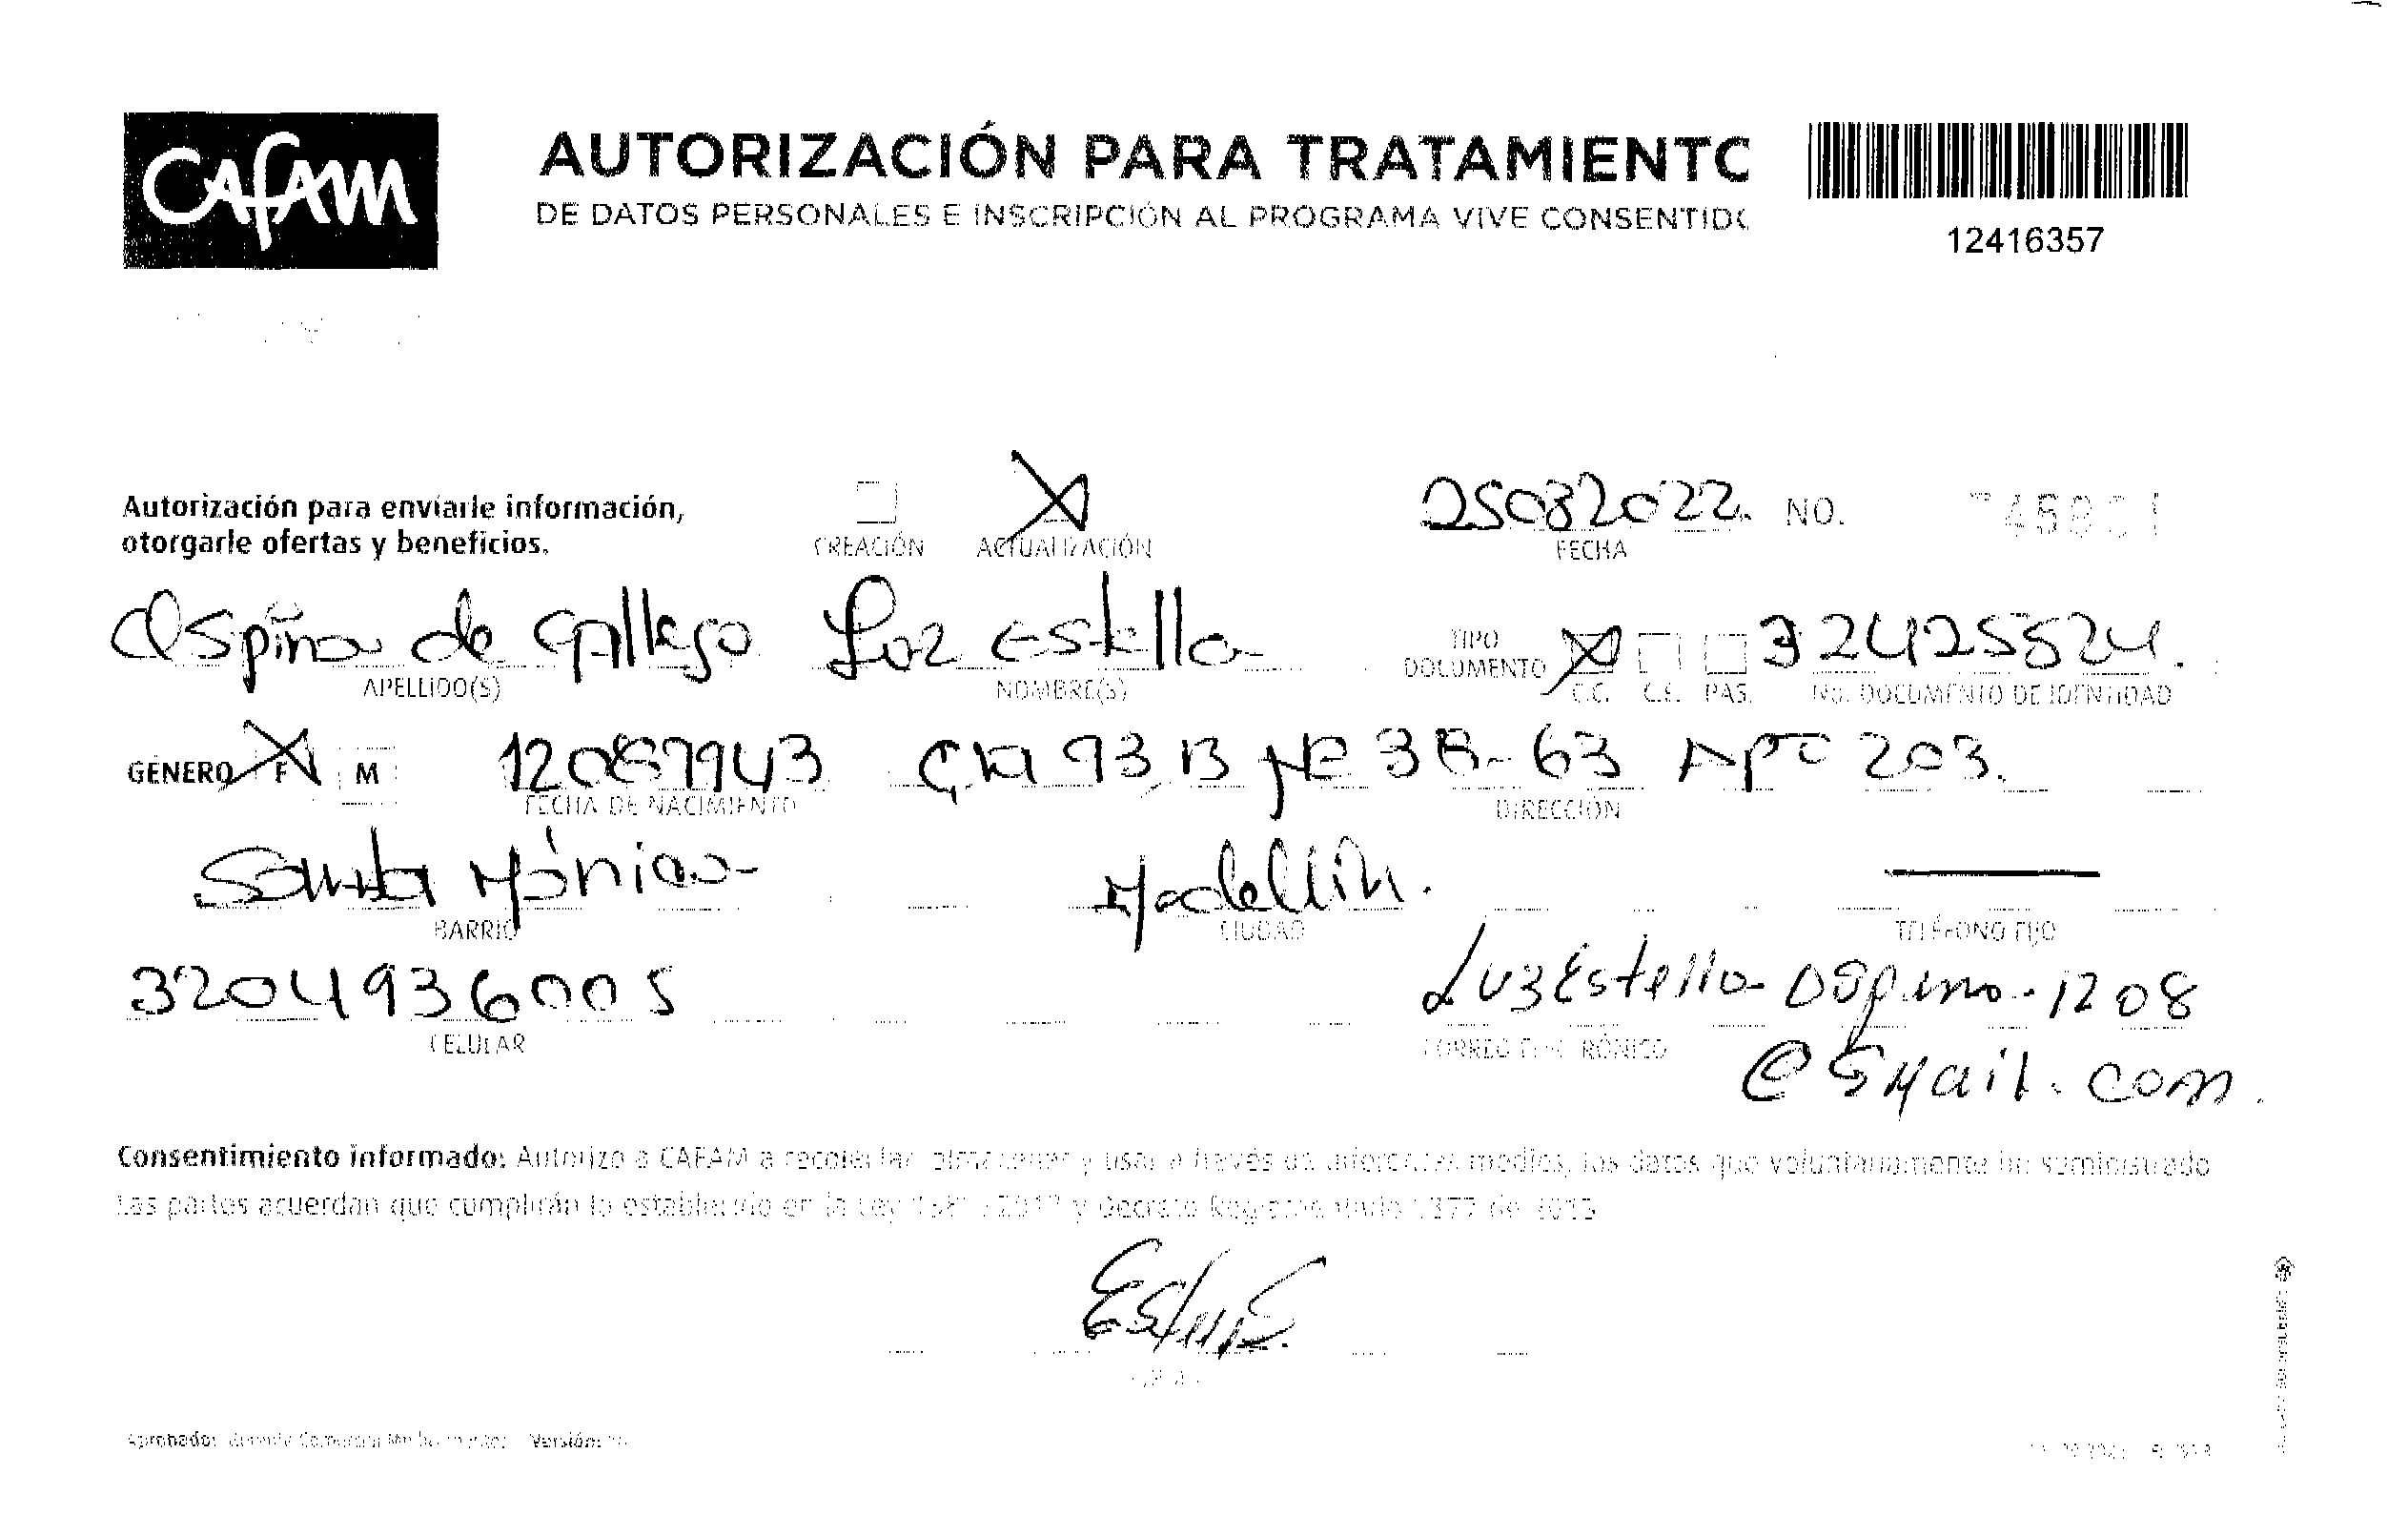 CAFAM
AUTORIZACIÓN PARA TRATAMIENTO
DE DATOS PERSONALES E INSCRIPCIÓN AL PROGRAMA VIVE CONSENTIDO
12416357
Autorización para enviarle información,
otorgarle ofertas y beneficios.
CREACIÓN ACTUALIZACIÓN
25082022. NO.
FECHA
Ospina de Gallego Luz Estella
APELLIDO(S) NOMBRE(S)
TIPO DOCUMENTO C.C. C.E. PAS.
32425524.
NO. DOCUMENTO DE IDENTIDAD
GÉNERO F M
12081943 CRA 93 B Nº 38-63 APTO 203.
FECHA DE NACIMIENTO DIRECCIÓN
Santa Mónica Medellín.
BARRIO CIUDAD TELÉFONO FIJO
3204936005 LuzEstellaOspina.1208
@gmail.com.
CELULAR CORREO ELECTRÓNICO
Consentimiento informado: Autorizo a CAFAM a recolectar, almacenar y usar a través de diferentes medios, los datos que voluntariamente he suministrado
Las partes acuerdan que cumplirán lo establecido en la Ley y Decreto Reglamentario 1377 de 2013
Aprobado: Versión: